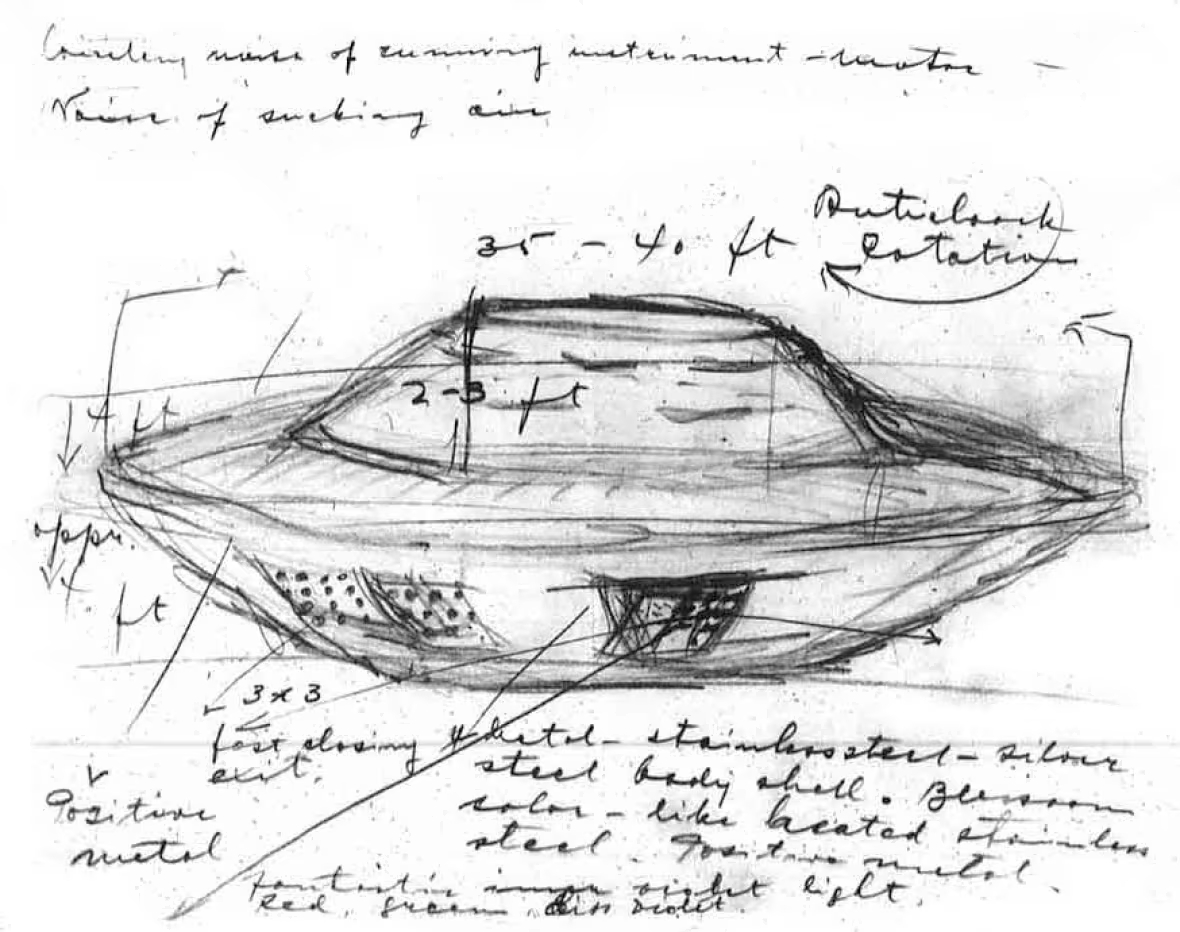 noise of running instrument - motor -
Noise of sucking air
Anticlock
Rotation
35 - 40 ft
2-3 ft
4 ft
appr.
4 ft
3 x 3
fast closing
exit.
Positive
metal
Metal - stainless steel - silver
steel body shell.
color - like heated stainless
steel. Positive metal.
fantastic inner violet light.
red, green, violet.